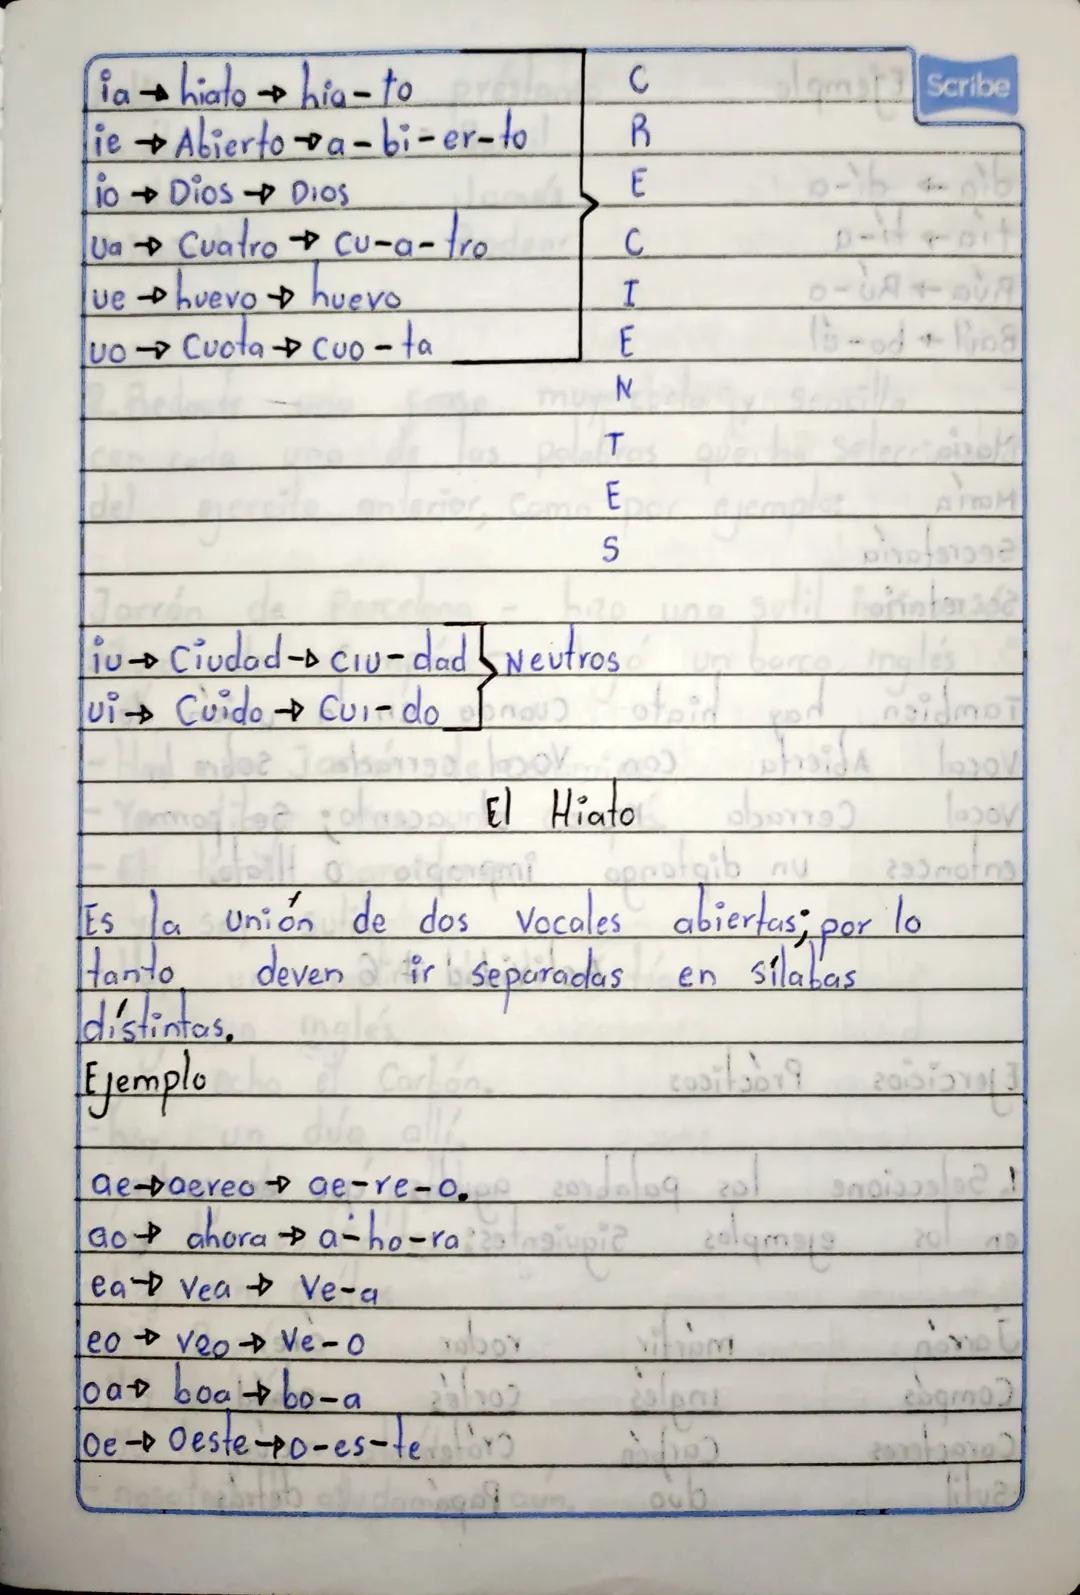 Scribe
ia → hiato → hia-to
ie → Abierto → a-bi-er-to
io → Dios → Dios
ua → Cuatro → cu-a-tro
ue → huevo → huevo
uo → Cuota → cuo-ta
C
R
E
C
I
E
N
T
E
S
iu → Ciudad → ciu-dad } Neutros
ui → Cuido → Cui-do
El Hiato
Es la unión de dos vocales abiertas; por lo
tanto deven ir separadas en sílabas
dístintas.
Ejemplo
ae → aereo → ae-re-o.
ao → ahora → a-ho-ra
ea → vea → ve-a
eo → veo → ve-o
oa → boa → bo-a
oe → Oeste → o-es-te